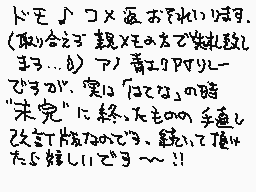 ドモ♪コメ返おそれいります。
(取り合えず親メモの方で失礼致し
ます…〆) アノ 青エクアマリリー
ですが、実は「はてな」の時
"未完"に終ったものの手直し
改訂版なのです。続いて頂け
たら嬉しいです〜!!